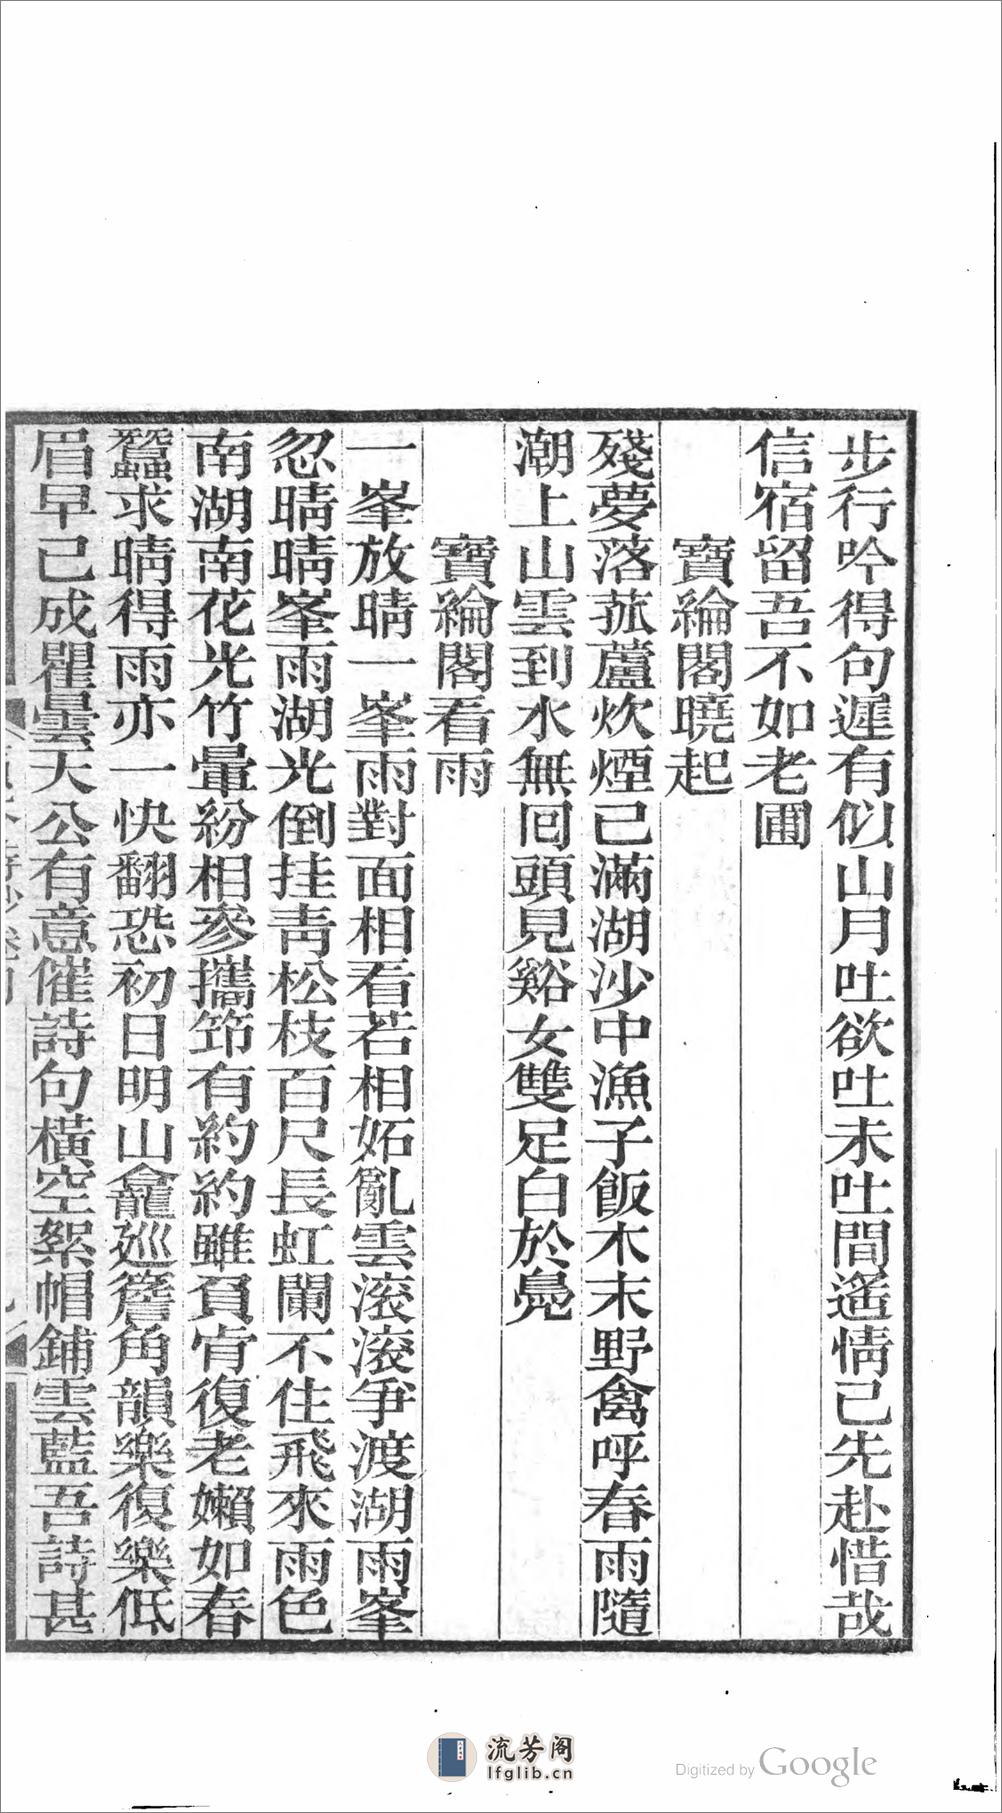 步行吟得句遲有似山月吐欲吐未吐間遙情已先赴惜哉
信宿留吾不如老圃
寶綸閣曉起
殘夢落菰蘆炊煙已滿湖沙中漁子飯木末野禽呼春雨隨
潮上山雲到水無回頭見谿女雙足白於鳧
寶綸閣看雨
一峯放晴一峯雨對面相看若相妬亂雲滚滚爭渡湖雨峯
忽晴晴峯雨湖光倒挂靑松枝百尺長虹闌不住飛來雨色
南湖南花光竹暈紛相參攜筇有約約雖負宵復老嬾如春
蠶求晴得雨亦一快翻恐初日明山龕巡簷角韻樂復樂低
眉早已成瞿曇天公有意催詩句橫空絮帽鋪雲藍吾詩甚
流芳阁
lfglib.cn
Digitized by Google